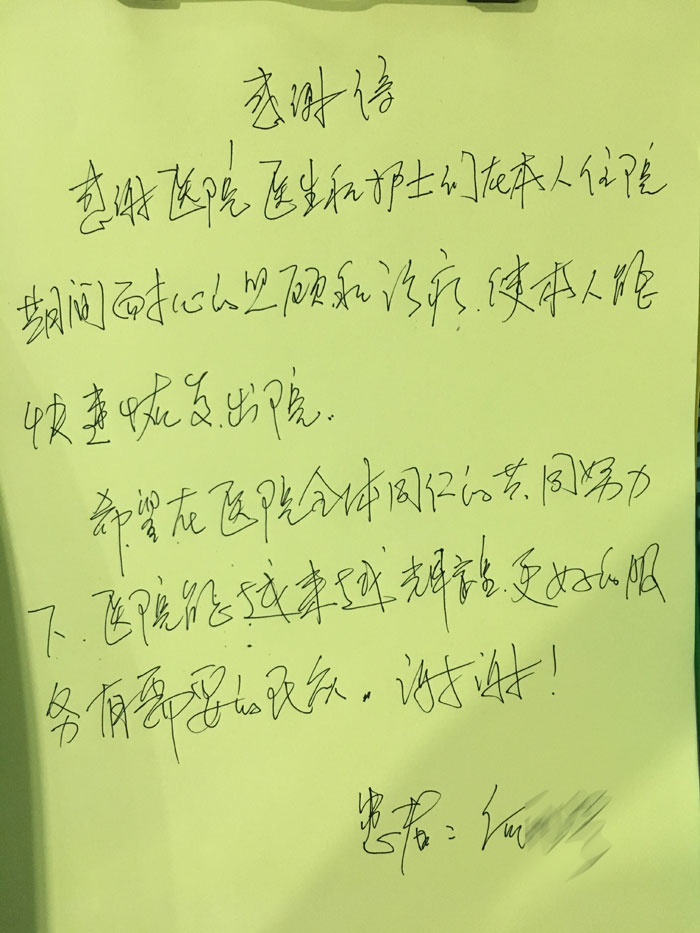 感谢信
感谢医院医生和护士们在本人住院
期间面耐心的照顾和诊疗.使本人能
快速恢复出院.
希望在医院全体同仁的共同努力
下.医院能越来越辉煌.更好的服
务有需要的民众.谢谢!
患者:何